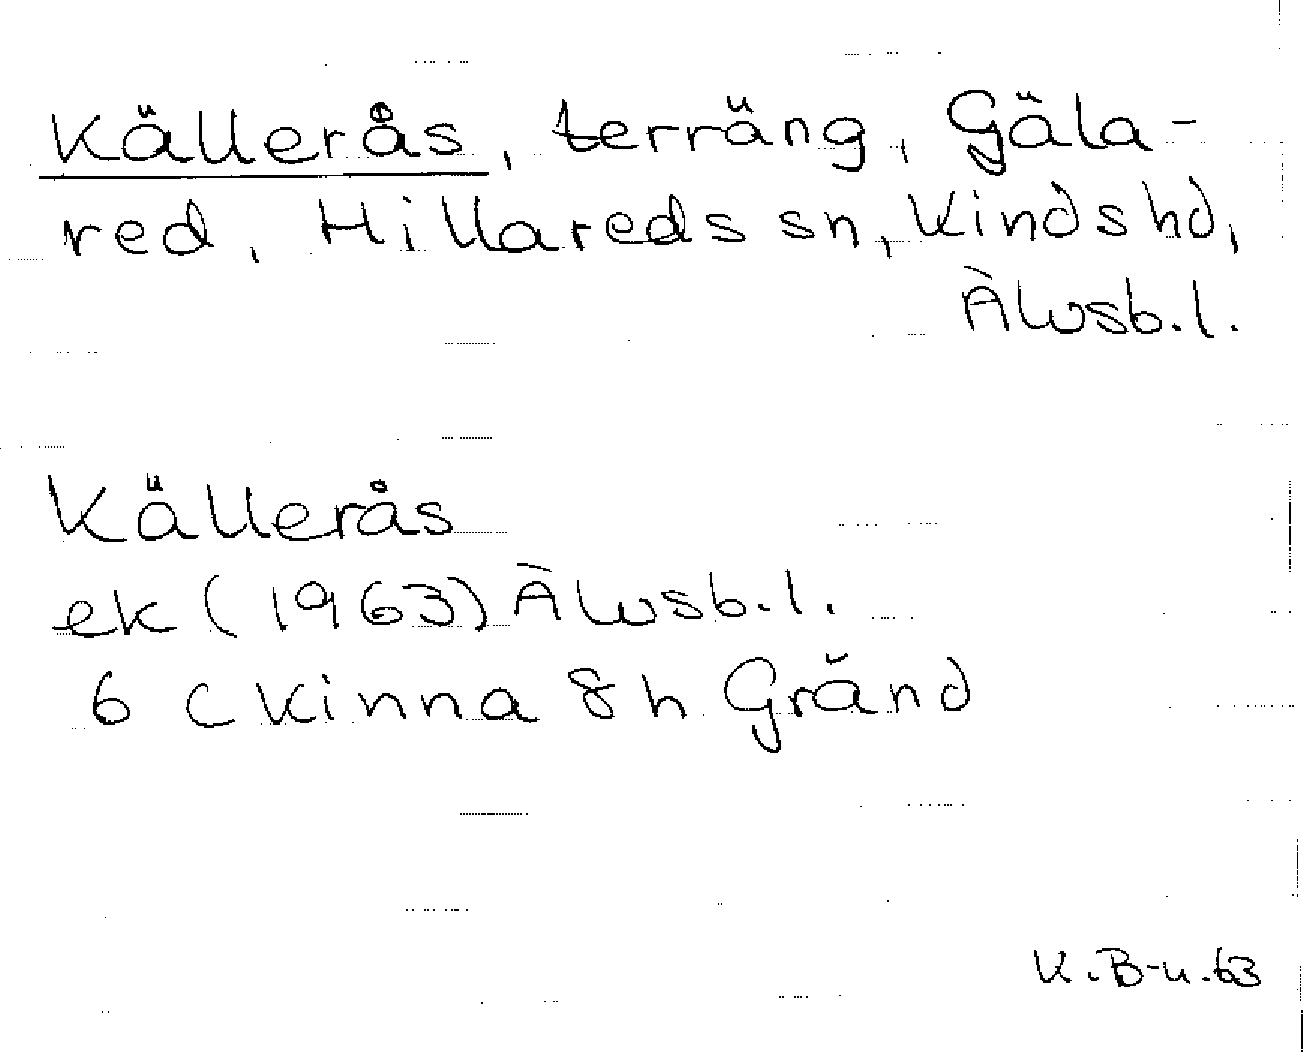 Källerås, terräng, Gäla-
red, Hillareds sn, Kinds hd,
Älvsb. l.
Källerås
ek (1963) Älvsb. l.
6 C Kinna 8 h Gränd
K. B-n. 63